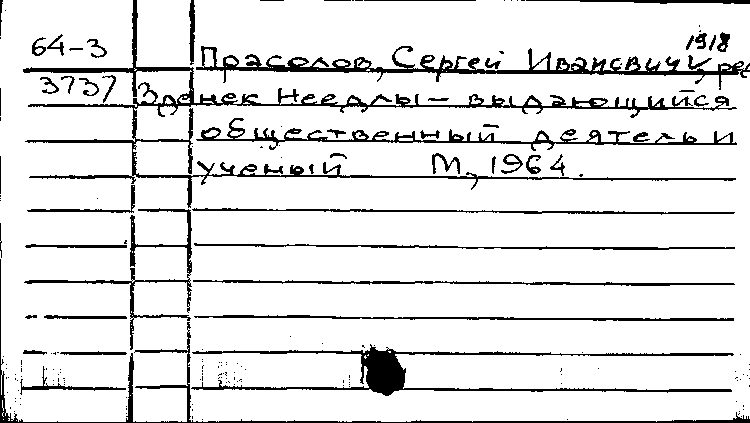 1918
64-3 Прасолов, Сергей Иванович, ред
3737 Зденек Неедлы - выдающийся
общественный деятель и
ученый М., 1964.